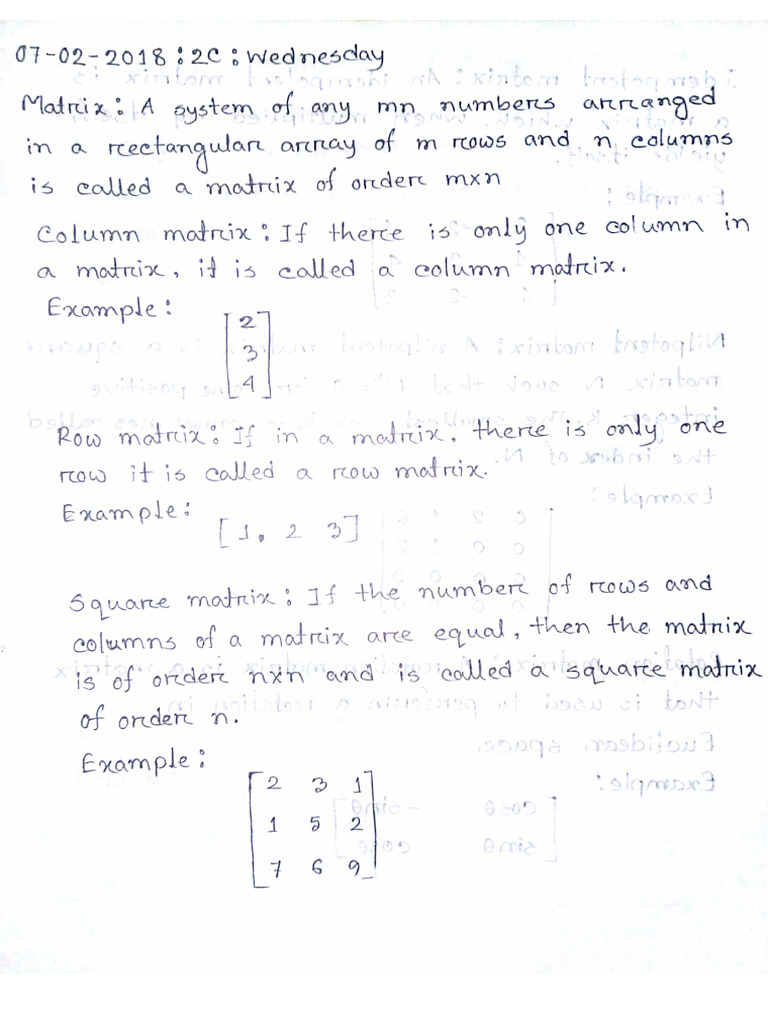 07-02-2018:2C:Wednesday
Matrix: A system of any mn numbers arranged
in a rectangular array of m rows and n columns
is called a matrix of order mxn
Column matrix: If there is only one column in
a matrix, it is called a column matrix.
Example:
[2
3
4]
Row matrix: If in a matrix, there is only one
row it is called a row matrix.
Example:
[1, 2 3]
Square matrix: If the number of rows and
columns of a matrix are equal, then the matrix
is of order nxn and is called a square matrix
of order n.
Example:
[2 3 1
1 5 2
7 6 9]